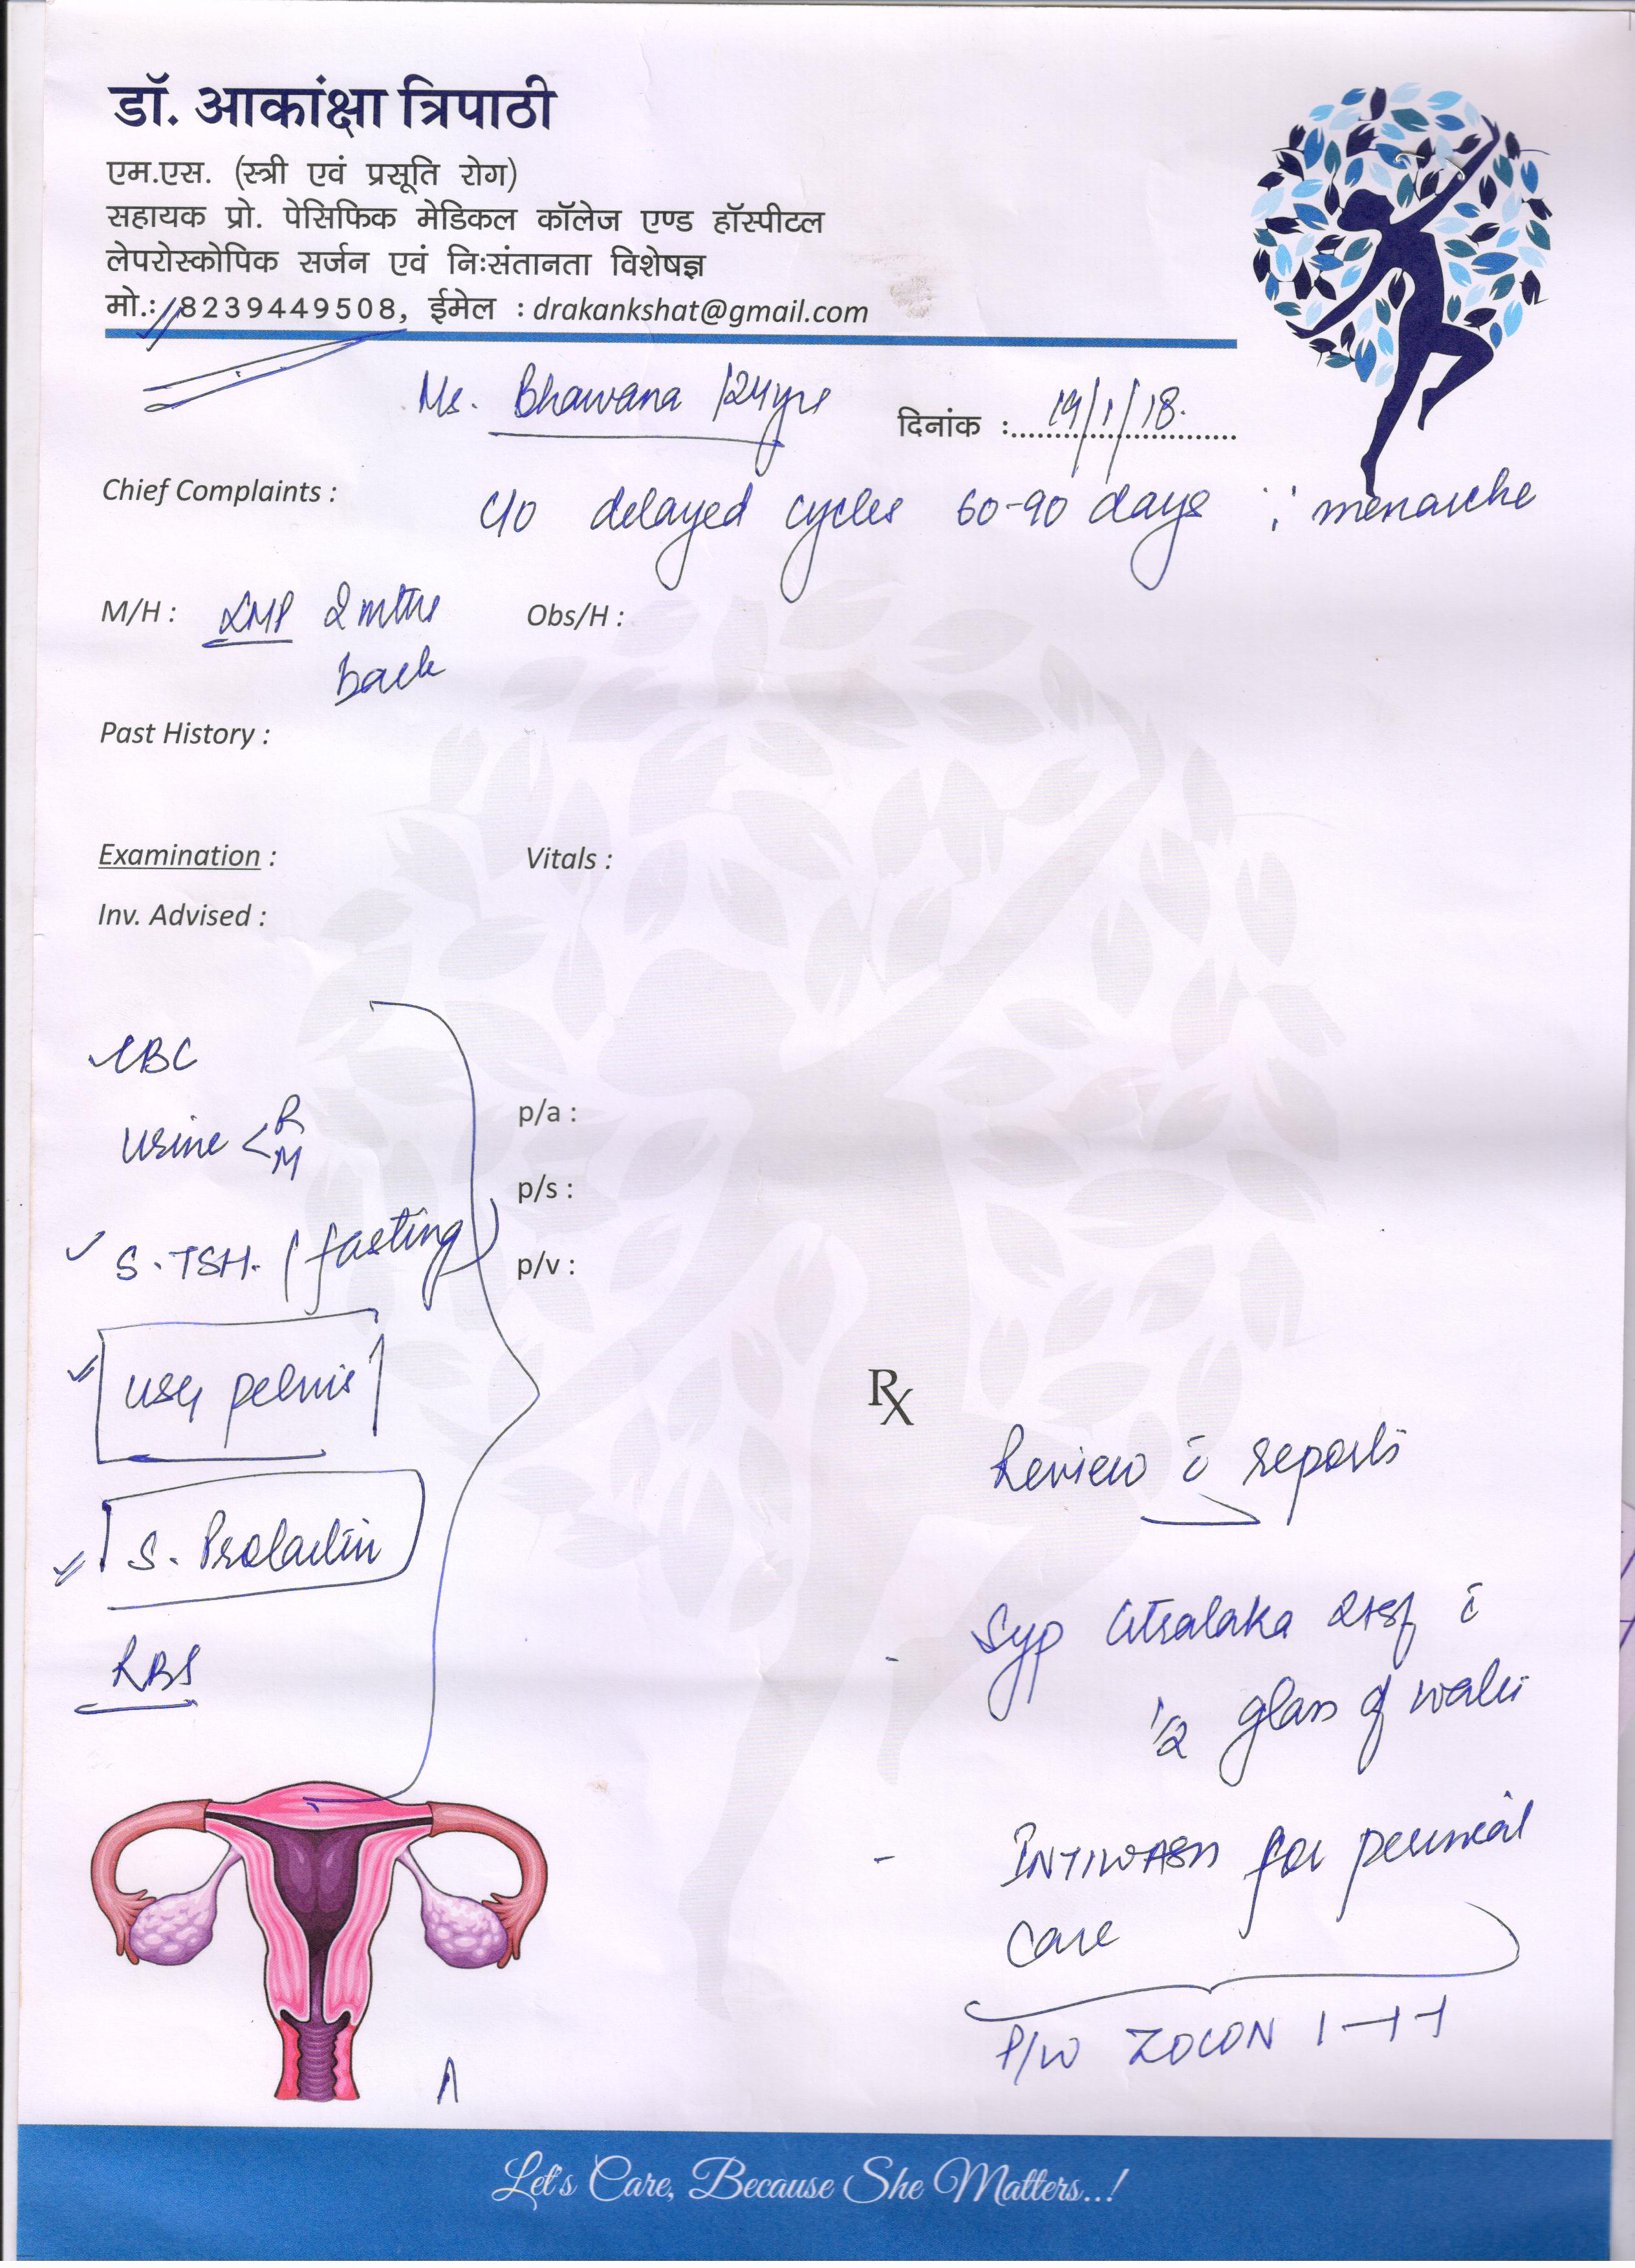 डॉ. आकांक्षा त्रिपाठी
एम.एस. (स्त्री एवं प्रसूति रोग)
सहायक प्रो. पेसिफिक मेडिकल कॉलेज एण्ड हॉस्पीटल
लेपरोस्कोपिक सर्जन एवं निःसंतानता विशेषज्ञ
मो.: 8239449508, ईमेल : drakankshat@gmail.com
Ms. Bhawana /24yrs
दिनांक : 19/1/18.
Chief Complaints : c/o delayed cycles 60-90 days menarche
M/H : LMP 2 mths back
Obs/H :
Past History :
Examination :
Vitals :
Inv. Advised :
CBC
Urine < R M
p/a :
p/s :
S. TSH. (fasting)
p/v :
USG pelvis
Rx
Review c̄ reports
S. Prolactin
- Syp Citralaka 2tsf c̄
1/2 glass of water
RBS
- INTIWASH for perineal
care
P/W ZOCON 1-1-1
Let's Care, Because She Matters..!